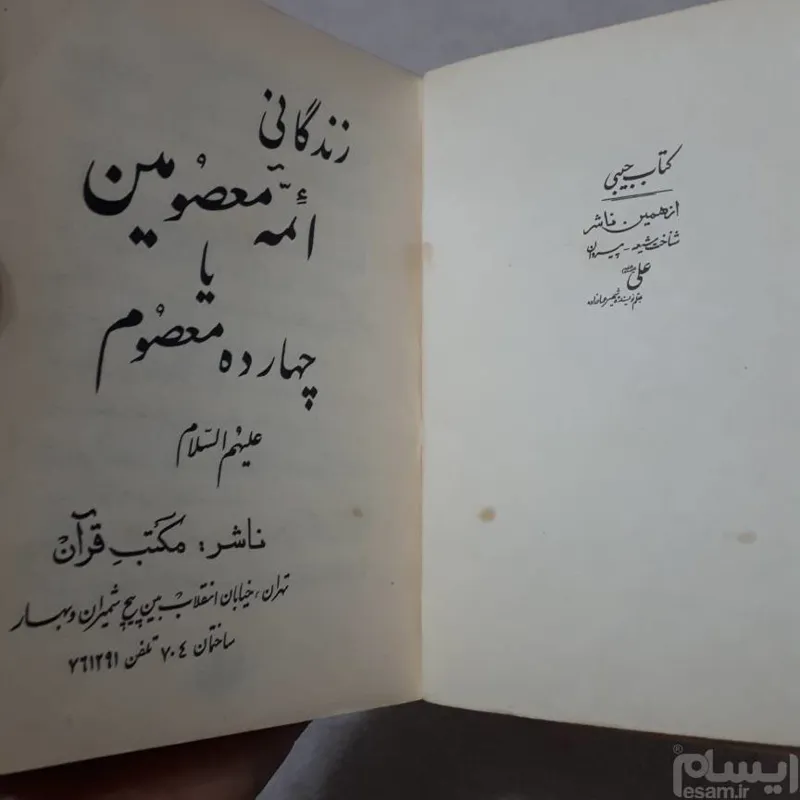 کتاب جیبی
از همین ناشر
شناخت شیعه - پیروان
علی
زندگانی
ائمّه معصومین
یا
چهارده معصوم
علیهم السّلام
ناشر: مکتب قرآن
تهران، خیابان انقلاب بین پیچ شمیران و بهار
ساختمان ۷۰۴ تلفن ۷۶۱۲۹۱
ایسام®
esam.ir